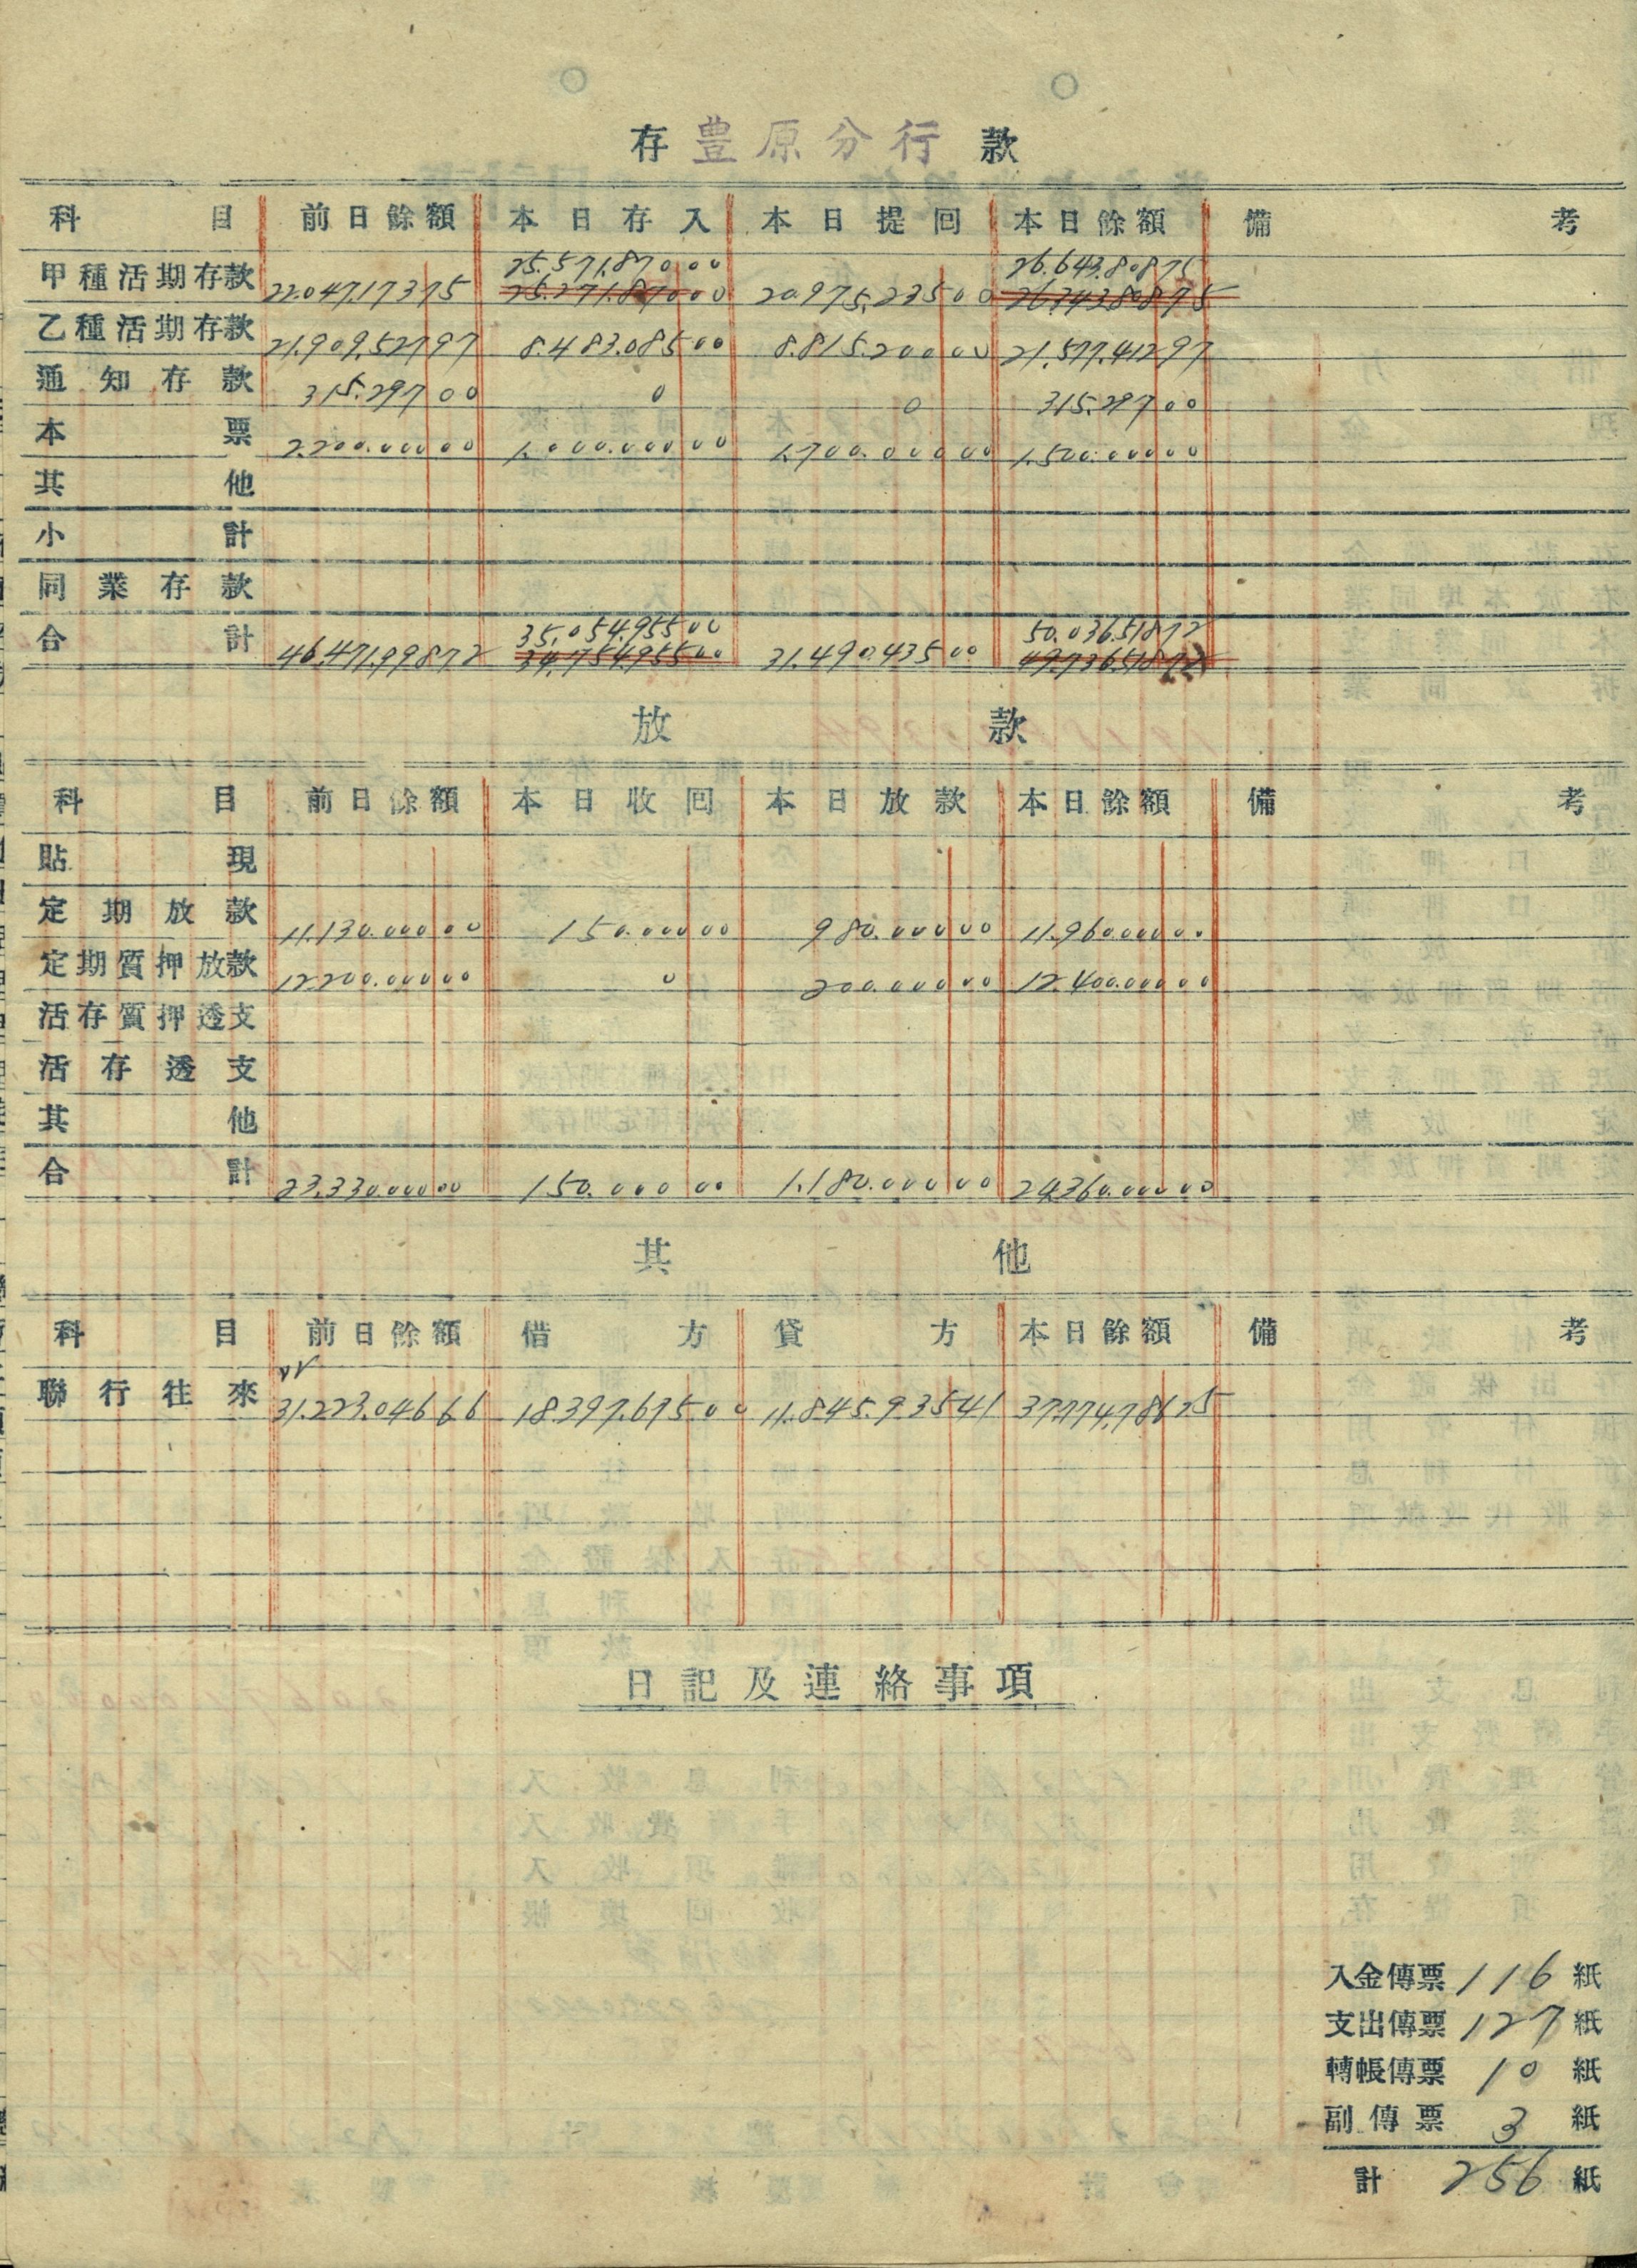 存 豊原分行 款
科目 前日餘額 本日存入 本日提回 本日餘額 備考
25.571.870 00 26.643.808 75
甲種活期存款 22.047.173 75 25.271.870 00 20.975.235 00 26.343.808 75
乙種活期存款 21.909.527 97 8.483.085 00 8.815.200 00 21.577.412 97
通知存款 315.297 00 0 0 315.297 00
本票 2.200.000 00 1.000.000 00 1.700.000 00 1.500.000 00
其他
小計
同業存款
35.054.955 00 50.036.518 72
合計 46.471.998 72 34.754.955 00 31.490.435 00 49.736.518 72
放款
科目 前日餘額 本日收回 本日放款 本日餘額 備考
貼現
定期放款 11.130.000 00 150.000 00 980.000 00 11.960.000 00
定期質押放款 12.200.000 00 0 200.000 00 12.400.000 00
活存質押透支
活存透支
其他
合計 23.330.000 00 150.000 00 1.180.000 00 24.360.000 00
其他
科目 前日餘額 借方 貸方 本日餘額 備考
聯行往來 31.223.046 66 18.397.675 00 11.845.935 41 37.774.786 25
日記及連絡事項
入金傳票 116 紙
支出傳票 127 紙
轉帳傳票 10 紙
副傳票 3 紙
計 256 紙